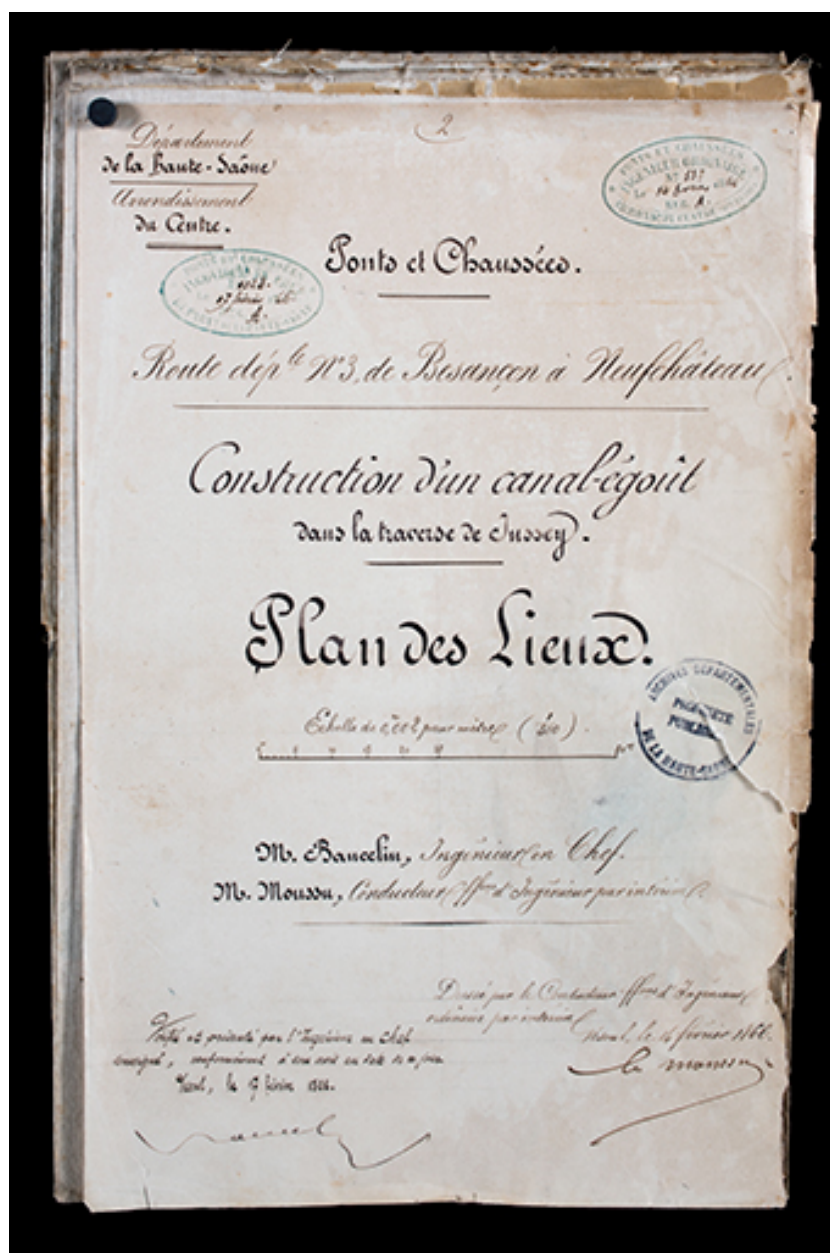 2
Département
de la Haute-Saône
Arrondissement
du Centre.
PONTS ET CHAUSSÉES
INGÉNIEUR ORDINAIRE
N° 537
A.
Ponts et Chaussées.
17 février
A.
Route dép^le N° 3, de Besançon à Neufchâteau.
Construction d'un canal-égoût
dans la traverse de Jussey.
Plan des Lieux.
Echelle de 0,002 pour mètre
ARCHIVES DÉPARTEMENTALES
PROPRIÉTÉ
PUBLIQUE
DE LA HAUTE-SAONE
M. Bancelin, Ingénieur en Chef.
M. Moussu, Conducteur ff^ons d'Ingénieur par intérim.
Dressé par le Conducteur ff^ons d'Ingénieur
ordinaire par intérim
Vesoul, le 14 février 1866.
Vérifié et présenté par l'Ingénieur en chef
soussigné, conformément à son avis en date de ce jour.
Vesoul, le 17 février 1866.